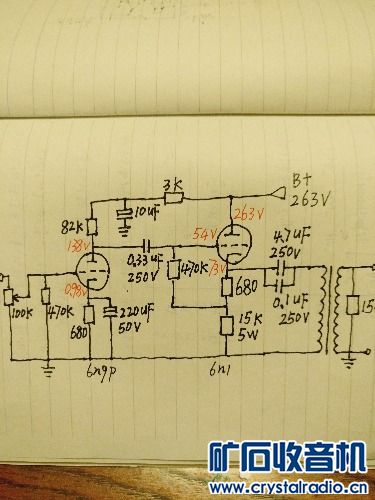 B+
263V
3K
10uF
263V
82K
138V
54V
4.7uF
250V
0.33uF
250V
470K
73V
680
0.98V
0.1uF
250V
100K
470K
680
220uF
50V
15K
5W
15
6n9p
6n1
矿石收音机
www.crystalradio.cn